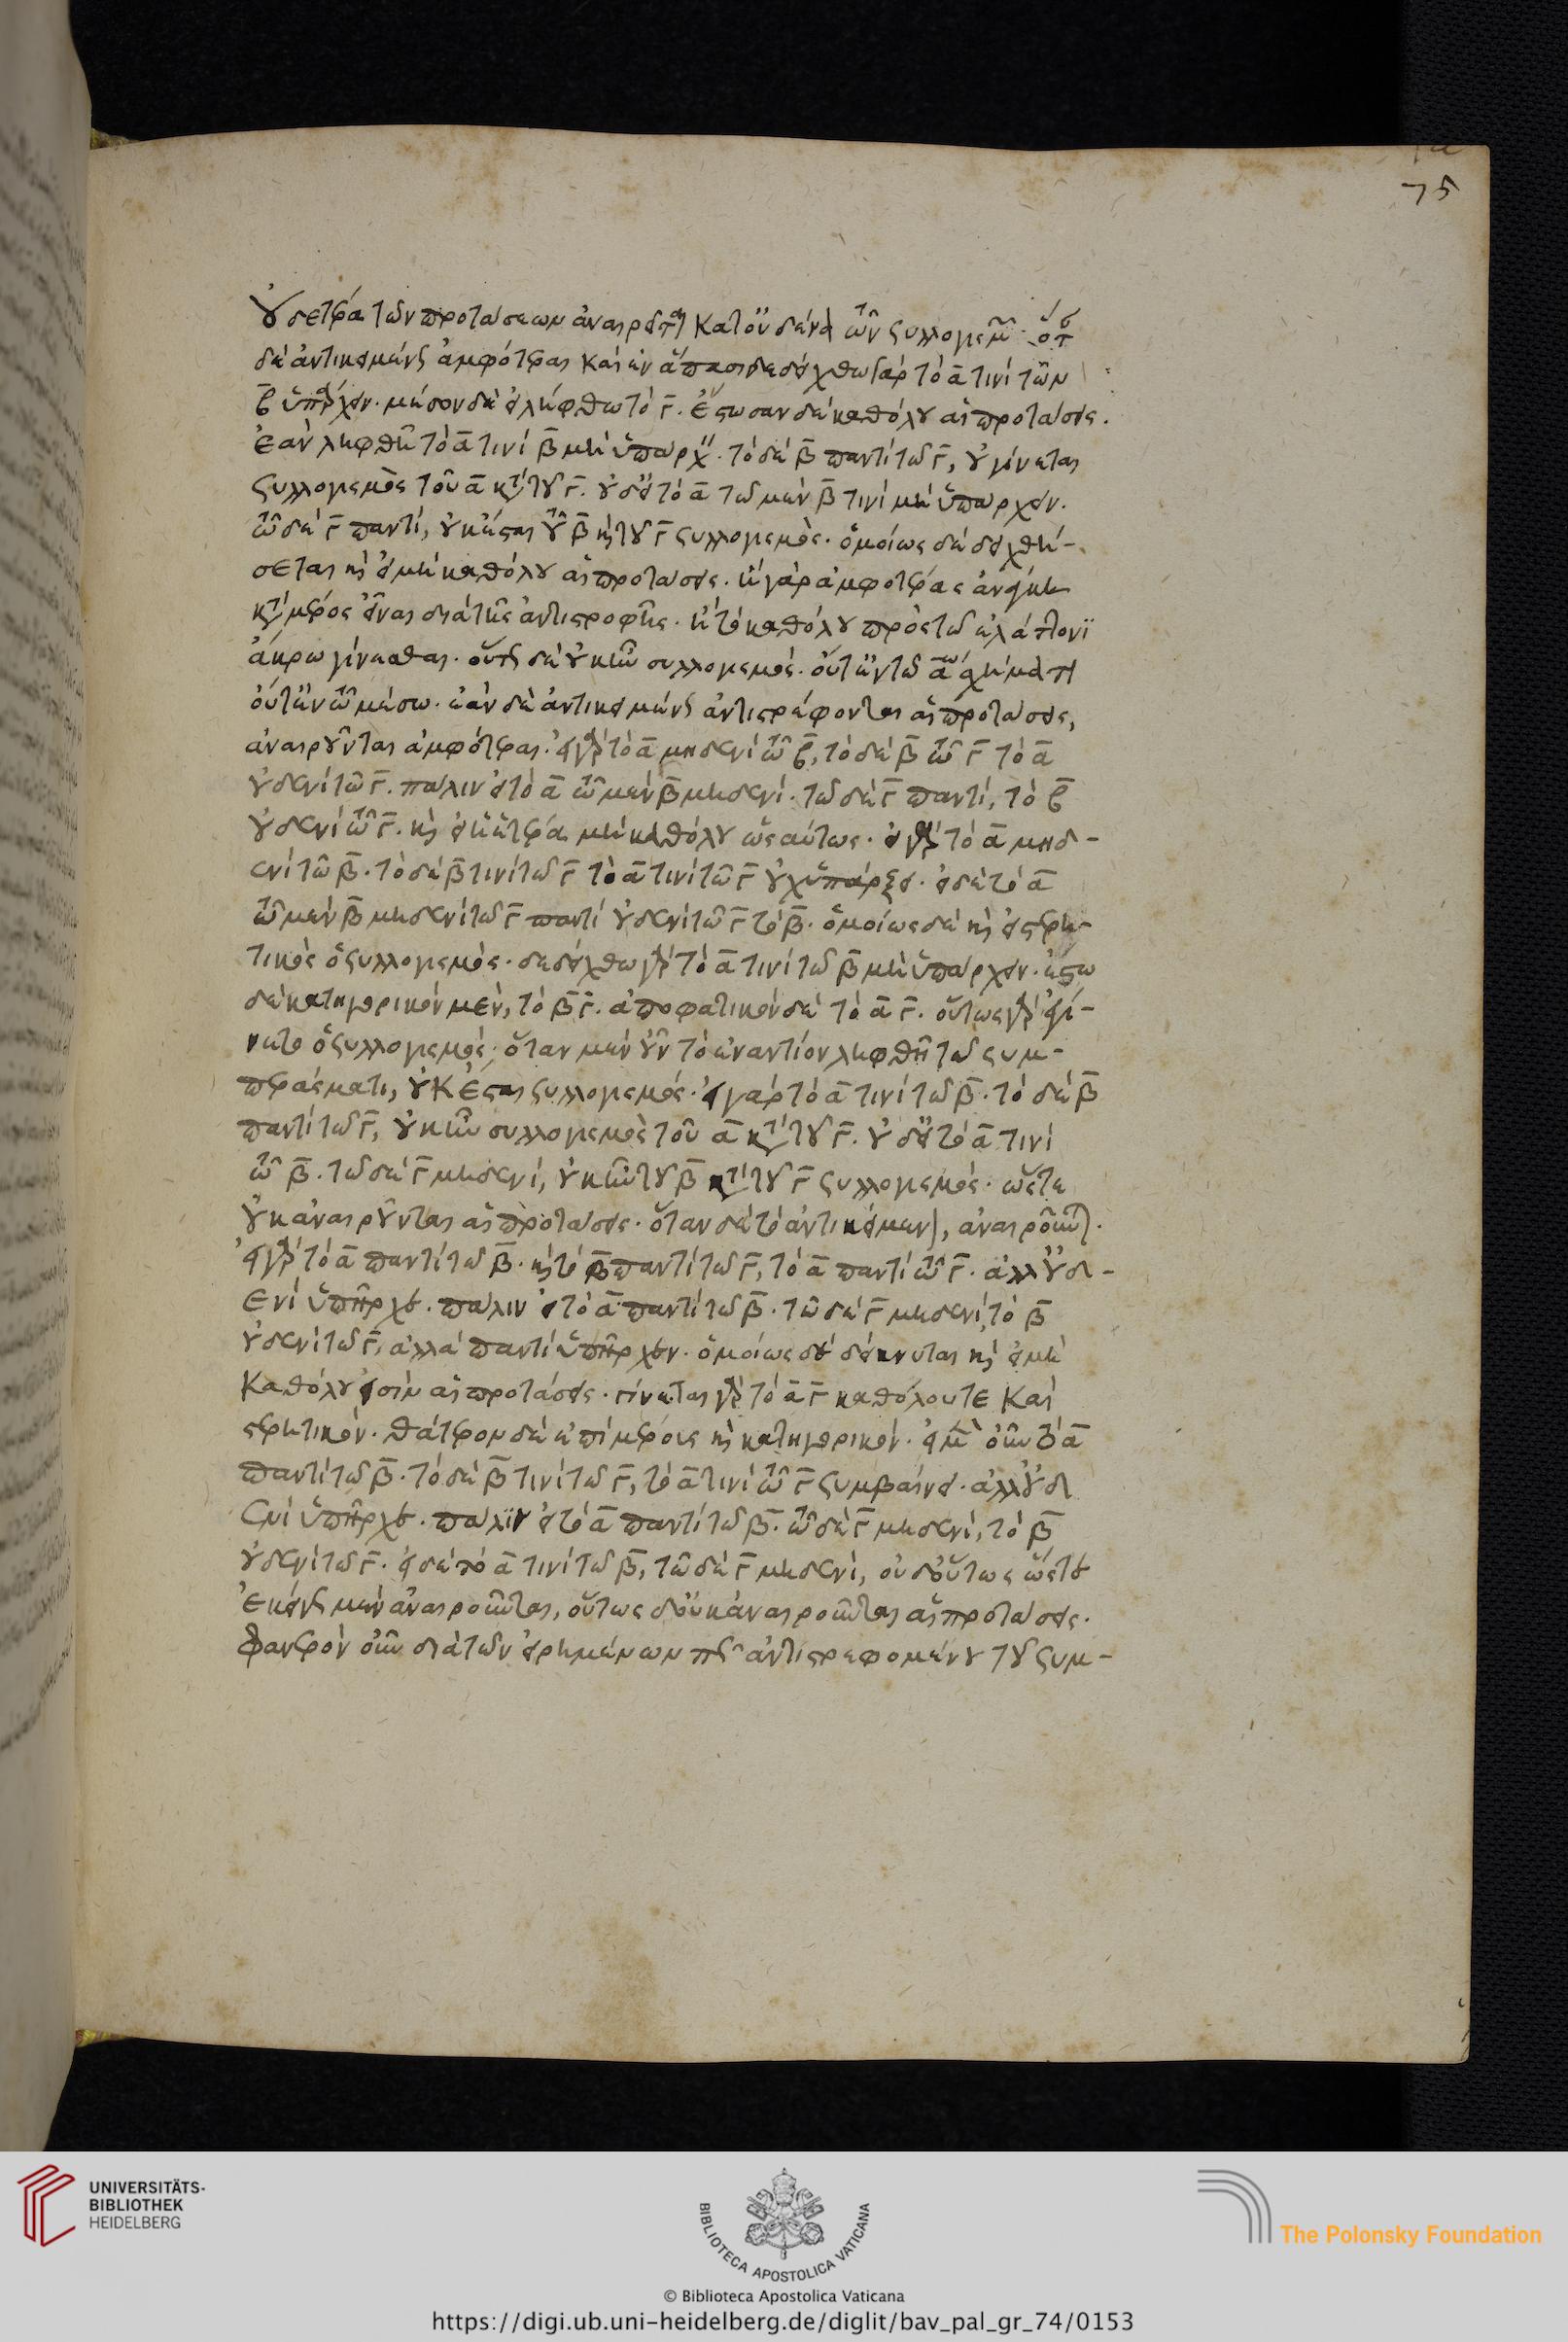 οὐδετέρα τῶν προτάσεων ἀναιρεῖται κατ' οὐδένα τῶν συλλογισμῶν· ὅταν
δὲ ἀντικειμένως ἀμφότεραι καὶ ἐν ἅπασι δεδείχθω γὰρ τὸ α̅ τινὶ τῶν
β̅ ὑπάρχειν· μέσον δὲ εἰλήφθω τὸ γ̅. ἔστωσαν δὲ καθόλου αἱ προτάσεις.
Ἐὰν ληφθῆ τὸ α̅ τινὶ β̅ μὴ ὑπάρχειν· τὸ δὲ β̅ παντὶ τῶ γ̅, οὐ γίνεται
συλλογισμὸς τοῦ α̅ κατὰ τοῦ γ̅. οὐδ' εἰ τὸ α̅ τῶ μὲν β̅ τινὶ μὴ ὑπάρχειν.
τῶ δὲ γ̅ παντί, οὐκ ἔσται τοῦ β̅ κατὰ τοῦ γ̅ συλλογισμός· ὁμοίως δὲ δειχθή-
σεται καὶ εἰ μὴ καθόλου αἱ προτάσεις. ἢ γὰρ ἀμφοτέρας ἀνάγκη
κατὰ μέρος εἶναι διὰ τῆς ἀντιστροφῆς· ἢ τὸ καθόλου πρὸς τῶ ἐλάττονι
ἄκρω γίνεσθαι· οὕτως δὲ οὐκ ἦν συλλογισμός· οὔτ' ἐν τῶ α̅ω σχήματι
οὔτ' ἐν τῶ μέσω· ἐὰν δὲ ἀντικειμένως ἀντιστρέφονται αἱ προτάσεις,
ἀναιροῦνται ἀμφότεραι· εἰ γὰρ τὸ α̅ μηδενὶ τῶ β̅, τὸ δὲ β̅ τῶ γ̅ τὸ α̅
οὐδενὶ τῶ γ̅. πάλιν εἰ τὸ α̅ τῶ μὲν β̅ μηδενί· τῶ δὲ γ̅ παντί, τὸ β̅
οὐδενὶ τῶ γ̅. καὶ εἰ ἡ ἑτέρα μὴ καθόλου ὡσαύτως· εἰ γὰρ τὸ α̅ μηδ-
ενὶ τῶ β̅· τὸ δὲ β̅ τινὶ τῶ γ̅ τὸ α̅ τινὶ τῶ γ̅ οὐχ ὑπάρξει· εἰ δὲ τὸ α̅
τῶ μὲν β̅ μηδενὶ τῶ γ̅ παντὶ οὐδενὶ τῶ γ̅ τὸ β̅. ὁμοίως δὲ καὶ εἰ στερη-
τικὸς ὁ συλλογισμός· δεδείχθω γὰρ τὸ α̅ τινὶ τῶ β̅ μὴ ὑπάρχειν· ἔστω
δὲ κατηγορικὸν μὲν, τὸ β̅ γ̅. ἀποφατικὸν δὲ τὸ α̅ γ̅. οὕτως γὰρ ἐγί-
νετο ὁ συλλογισμός· ὅταν μὲν οὖν τὸ ἐναντίον ληφθῆ τῶ συμ-
περάσματι, οὐκ ἔσται συλλογισμός· εἰ γὰρ τὸ α̅ τινὶ τῶ β̅· τὸ δὲ β̅
παντὶ τῶ γ̅, οὐκ ἦν συλλογισμὸς τοῦ α̅ κατὰ τοῦ γ̅. οὐδ' εἰ τὸ α̅ τινὶ
τῶ β̅. τῶ δὲ γ̅ μηδενί, οὐκ ἦν τοῦ β̅ κατὰ τοῦ γ̅ συλλογισμός· ὥστε
οὐκ ἀναιροῦνται αἱ προτάσεις· ὅταν δὲ τὸ ἀντικείμενον, ἀναιροῦνται.
εἰ γὰρ τὸ α̅ παντὶ τῶ β̅· καὶ τὸ β̅ παντὶ τῶ γ̅, τὸ α̅ παντὶ τῶ γ̅. ἀλλ' οὐδ-
ενὶ ὑπῆρχε. πάλιν εἰ τὸ α̅ παντὶ τῶ β̅· τῶ δὲ γ̅ μηδενί, τὸ β̅
οὐδενὶ τῶ γ̅, ἀλλὰ παντὶ ὑπῆρχεν· ὁμοίως δὲ δείκνυται καὶ εἰ μὴ
καθόλου εἰσὶν αἱ προτάσεις· γίνεται γὰρ τὸ α̅ γ̅ καθόλου τε καὶ
στερητικόν· θάτερον δὲ ἐπὶ μέρους καὶ κατηγορικόν· εἰ μὲν οὖν τὸ α̅
παντὶ τῶ β̅· τὸ δὲ β̅ τινὶ τῶ γ̅, τὸ α̅ τινὶ τῶ γ̅ συμβαίνει· ἀλλ' οὐδ
ενὶ ὑπῆρχε· πάλιν εἰ τὸ α̅ παντὶ τῶ β̅· τῶ δὲ γ̅ μηδενὶ, τὸ β̅
οὐδενὶ τῶ γ̅. εἰ δὲ τὸ α̅ τινὶ τῶ β̅, τῶ δὲ γ̅ μηδενὶ, οὐδ' οὕτως ὥστε
ἐκείνως μὲν ἀναιροῦνται, οὕτως δ' οὐκ ἀναιροῦνται αἱ προτάσεις.
φανερὸν οὖν διὰ τῶν εἰρημένων πῶς ἀντιστρεφομένου τοῦ συμ-
75
UNIVERSITÄTS-
BIBLIOTHEK
HEIDELBERG
BIBLIOTECA APOSTOLICA VATICANA
The Polonsky Foundation
© Biblioteca Apostolica Vaticana
https://digi.ub.uni-heidelberg.de/diglit/bav_pal_gr_74/0153